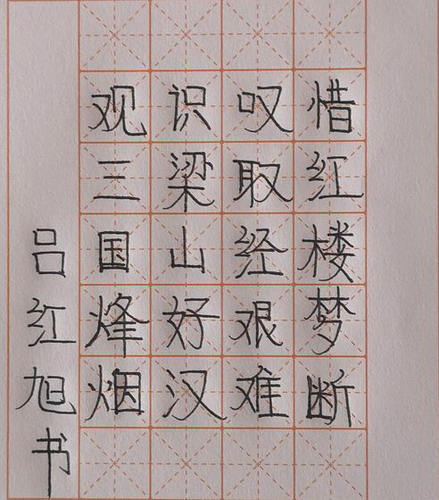 惜红楼梦断
叹取经艰难
识梁山好汉
观三国烽烟
吕红旭书